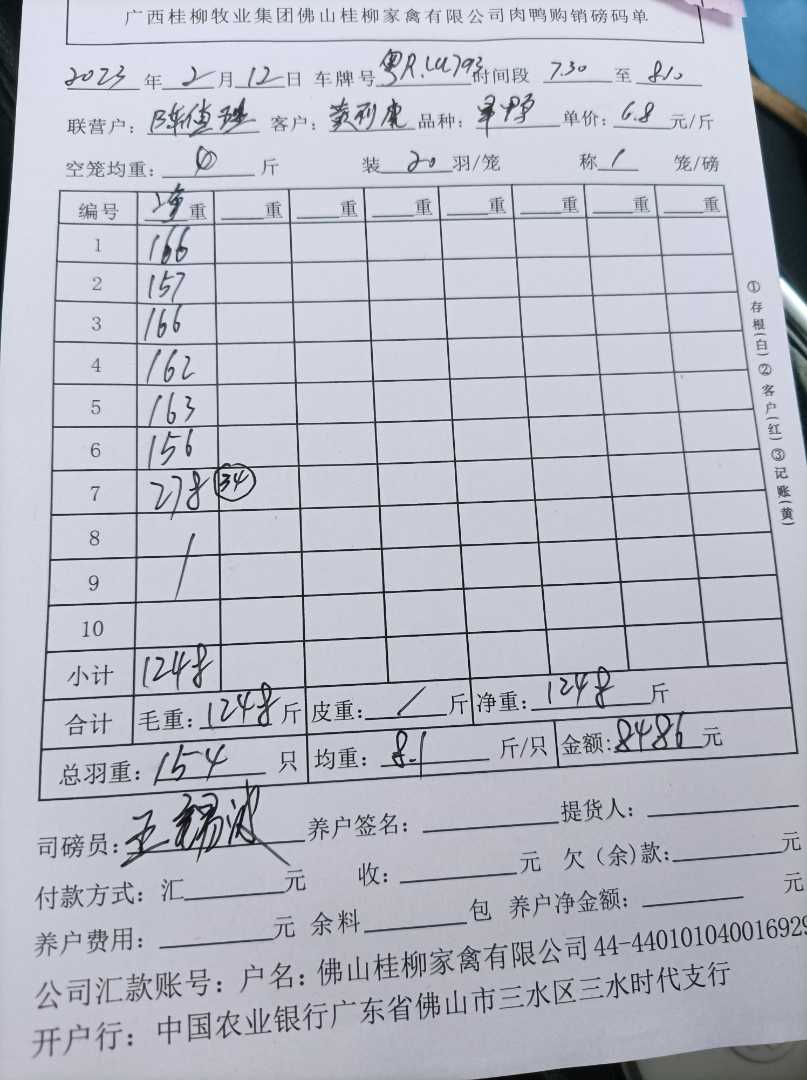 广西桂柳牧业集团佛山桂柳家禽有限公司肉鸭购销磅码单
2023 年 2 月 12 日 车牌号 粤R. 时间段 7.30 至 8.10
联营户: 陈 客户: 黄 品种: 单价: 6.8 元/斤
空笼均重: 斤 装 20 羽/笼 称 1 笼/磅
编号 净重 重 重 重 重 重 重 重
1 166
2 157
3 166
4 162
5 163
6 156
7 278 34
8
9
10
小计 1248
合计 毛重: 1248 斤 皮重: / 斤 净重: 1248 斤
总羽重: 154 只 均重: 8.1 斤/只 金额: 8486 元
司磅员: 王锡波 养户签名: 提货人:
付款方式: 汇 元 收: 元 欠(余)款: 元
养户费用: 元 余料 包 养户净金额: 元
公司汇款账号: 户名: 佛山桂柳家禽有限公司 44-440101040016929
开户行: 中国农业银行广东省佛山市三水区三水时代支行
①存根(白)②客户(红)③记账(黄)